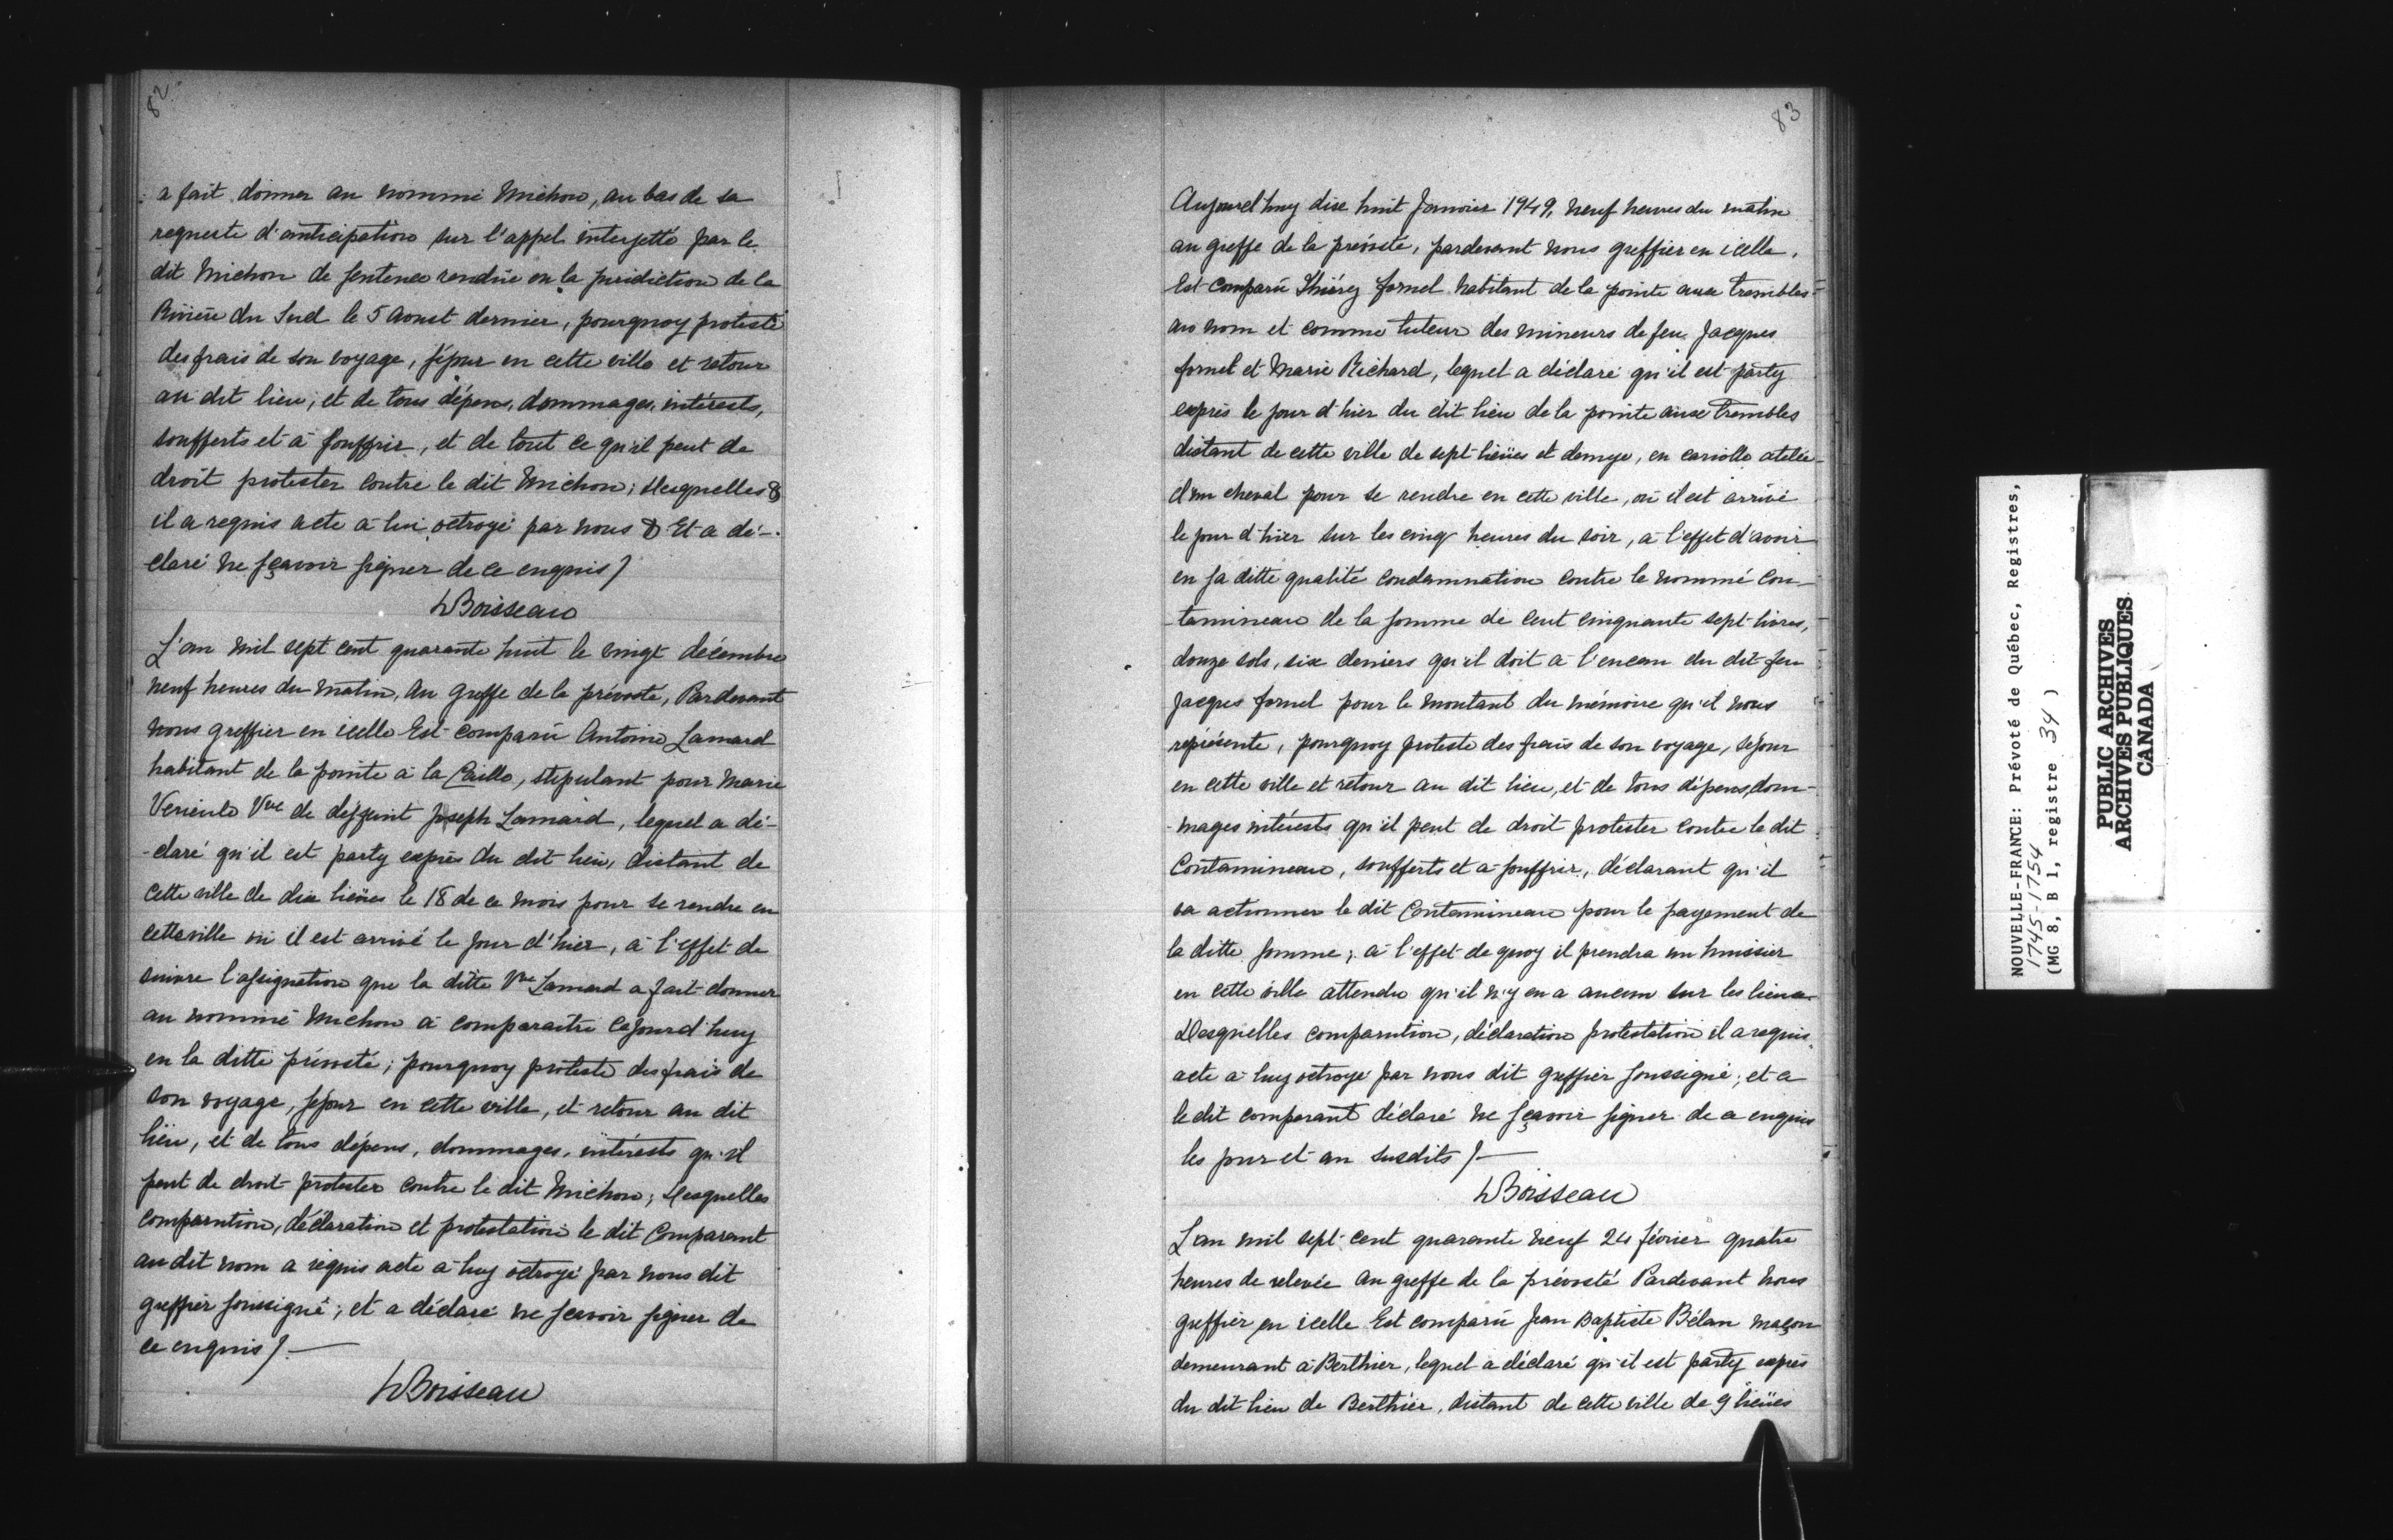 82
a fait donner au nommé Michon, au bas de sa
requeste d'anticipation sur l'appel interjetté par le
dit Michon de sentence rendüe en la juridiction de la
Rivière du Sud le 5 Aoust dernier, pourquoy proteste
des frais de son voyage, séjour en cette ville et retour
au dit lieu, et de tous dépens, dommages, intérests,
soufferts et à souffrir, et de tout ce qu'il peut de
droit protester contre le dit Michon; desquelles &
il a requis acte à lui octroyé par nous & Et a dé-
claré ne sçavoir signer de ce enquis /
hBoisseau
L'an mil sept cent quarante huit le vingt décembre
neuf heures du matin, au Greffe de la prévosté, Pardevant
nous greffier en icelle Est comparü Antoine Lamard
habitant de la pointe à la Caille, stipulant pour Marie
Vve de deffunt Joseph Lamard, lequel a dé-
-claré qu'il est party exprès du dit lieu, distant de
cette ville de dix lieües le 18 de ce mois pour se rendre en
cette ville où il est arrivé le jour d'hier, à l'effet de
suivre l'assignation que la ditte Vve Lamard a fait donner
au nommé Michon à comparaitre cejourd'huy
en la ditte prévosté; pourquoy proteste des frais de
son voyage, séjour en cette ville, et retour au dit
lieu, et de tous dépens, dommages, intérests qu'il
peut de droit protester contre le dit Michon; desquelles
comparution, déclaration et protestation le dit Comparant
au dit nom a requis acte à luy octroyé par nous dit
greffier soussigné; et a déclaré ne scavoir signer de
ce enquis /. —
hBoisseau
83
Aujourd'huy dix huit Janvier 1949, neuf heures du matin
au greffe de la prévosté, pardevant nous greffier en icelle,
Est comparü Thiérry fornel habitant de la pointe aux trembles
au nom et comme tuteur des mineurs de feu Jacques
fornel et Marie Richard, lequel a déclaré qu'il est party
exprès le jour d'hier du dit lieu de la pointe aux trembles
distant de cette ville de sept lieües et demye, en cariolle atelée
d'un cheval pour se rendre en cette ville, où il est arrivé
le jour d'hier sur les cinq heures du soir, à l'effet d'avoir
en sa ditte qualité condamnation contre le nommé Con-
-tamineau de la somme de cent cinquante sept livres,
douze sols, six deniers qu'il doit à l'encan du dit feu
Jacques fornel pour le montant du mémoire qu'il nous
représente, pourquoy proteste des frais de son voyage, séjour
en cette ville et retour au dit lieu, et de tous dépens, dom-
-mages intérests qu'il peut de droit protester contre le dit
Contamineau, soufferts et à souffrir, déclarant qu'il
va actionner le dit Contamineau pour le payement de
la ditte somme; à l'effet de quoy il prendra un huissier
en cette ville attendu qu'il n'y en a aucun sur les lieux
Desquelles comparution, déclaration protestation il a requis
acte à luy octroyé par nous dit greffier soussigné; et a
le dit comparant déclaré ne sçavoir signer de ce enquis
les jour et an susdits /—
hBoisseau
L'an mil sept cent quarante neuf 24 février quatre
heures de relevée au greffe de la prévosté Pardevant nous
greffier en icelle Est comparü Jean Baptiste Bélan maçon
demeurant à Berthier, lequel a déclaré qu'il est party exprès
du dit lieu de Berthier, distant de cette ville de 9 lieües
NOUVELLE-FRANCE: Prévoté de Québec, Registres,
1745-1754
(MG 8, B 1, registre 34 )
PUBLIC ARCHIVES
ARCHIVES PUBLIQUES
CANADA